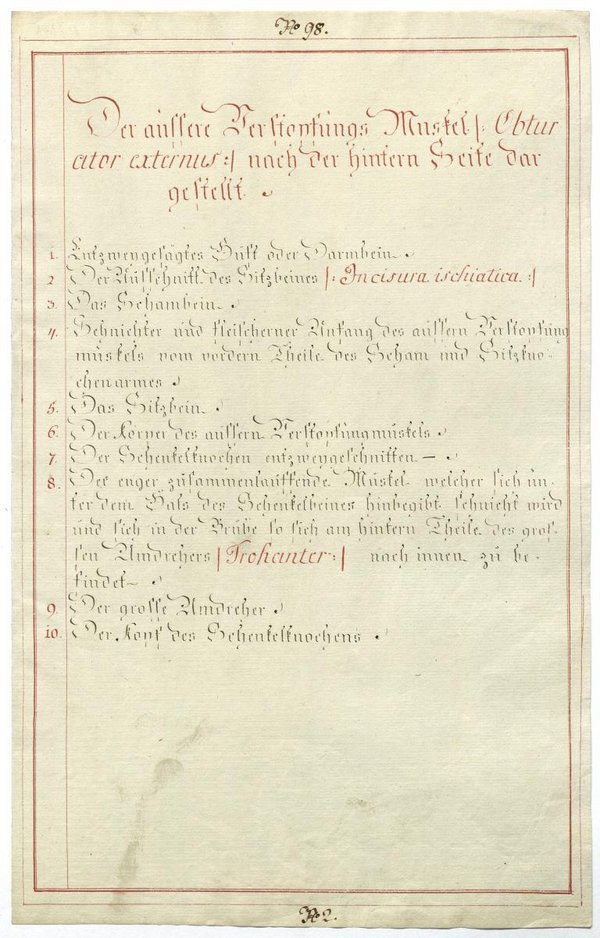 No 98.
Der äussere Verstopfungs Muskel /: Obtur
ator externus :/ nach der hintern Seite dar
gestellt.
1. Entzweygesägtes Huft oder Darmbein.
2 Der Ausschnitt des Sitzbeines /: Incisura ischiatica :/
3. Das Schambein.
4. Sehnichter und fleischerner Anfang des äussern Verstopfung
müskels vom vordern Theile des Scham und Sitzkno-
chenarmes
5. Das Sitzbein.
6. Der Körper des äussern Verstopfungmuskels
7. Der Schenkelknochen entzweygeschnitten –
8. Der enger zusammenlauffende Muskel welcher sich un-
ter dem Hals des Schenkelbeines hinbegibt sehnicht wird
und sich in der Grube so sich am hintern Theile des gros-
sen Umdrehers /Trohanter :/ nach innen zu be-
findet –
9. Der grosse Umdreher
10. Der Kopf des Schenkelknochens
No 2.